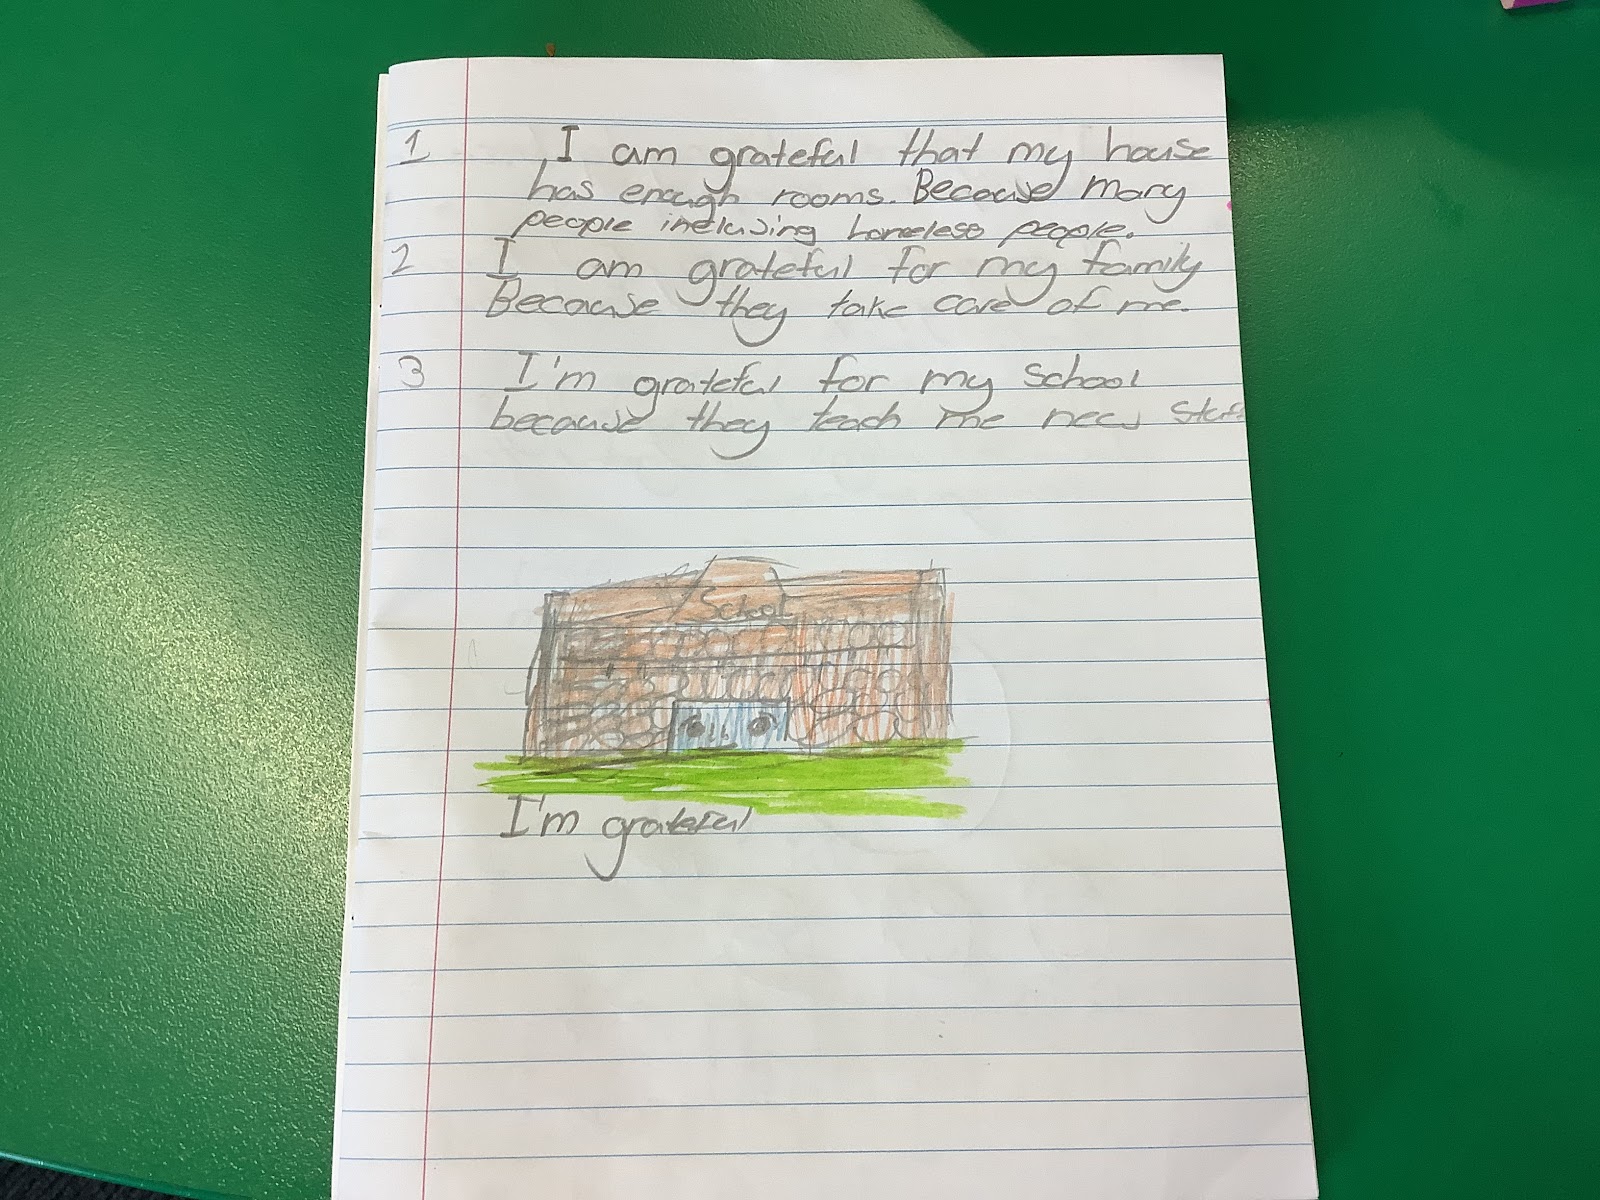 1 I am grateful that my house
has enough rooms. Because many
people inclusing homeless people.
2 I am grateful for my family
Because they take care of me.
3 I'm grateful for my school
because they teach me new stuff
School
I'm grateful